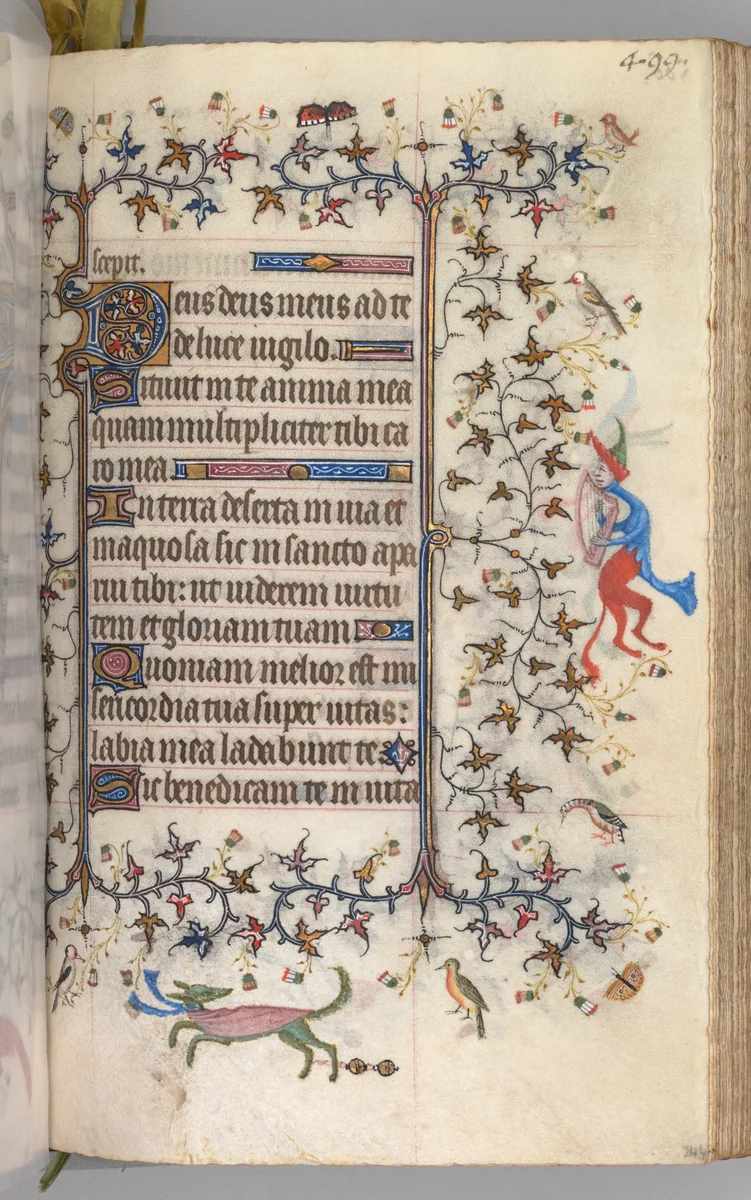 499
scepit.
Deus deus meus ad te
de luce iugilo.
Sitiuit in te anima mea
quam multipliciter tibi ca
ro mea
In terra deserta in uia et
inaquosa sic in sancto apa
rui tibi: ut uiderem uirtu
tem et gloriam tuam
Quoniam melior est mi
sericordia tua super uitas:
labia mea ladabunt te
Sic benedicam te in uita